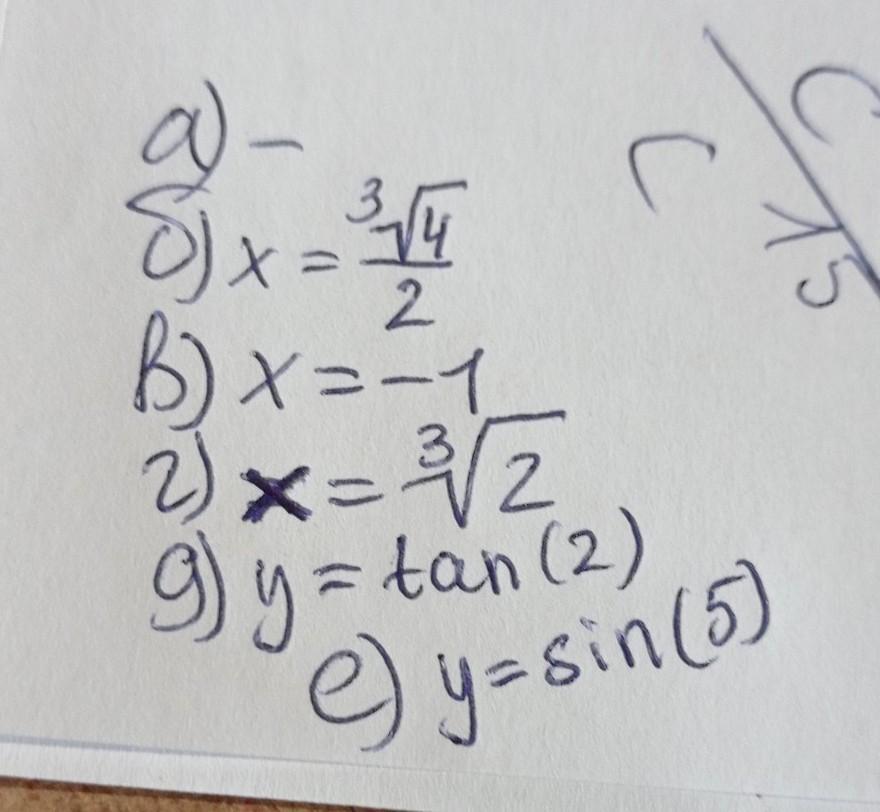 а) −
б) x = ∛4/2
в) x = −1
г) x = ∛2
д) y = tan(2)
е) y = sin(5)